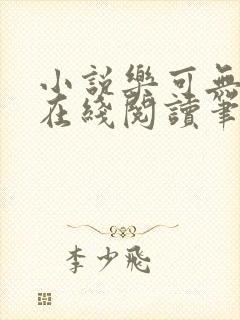 小説樂可無
在綫閱讀筆
李少飛